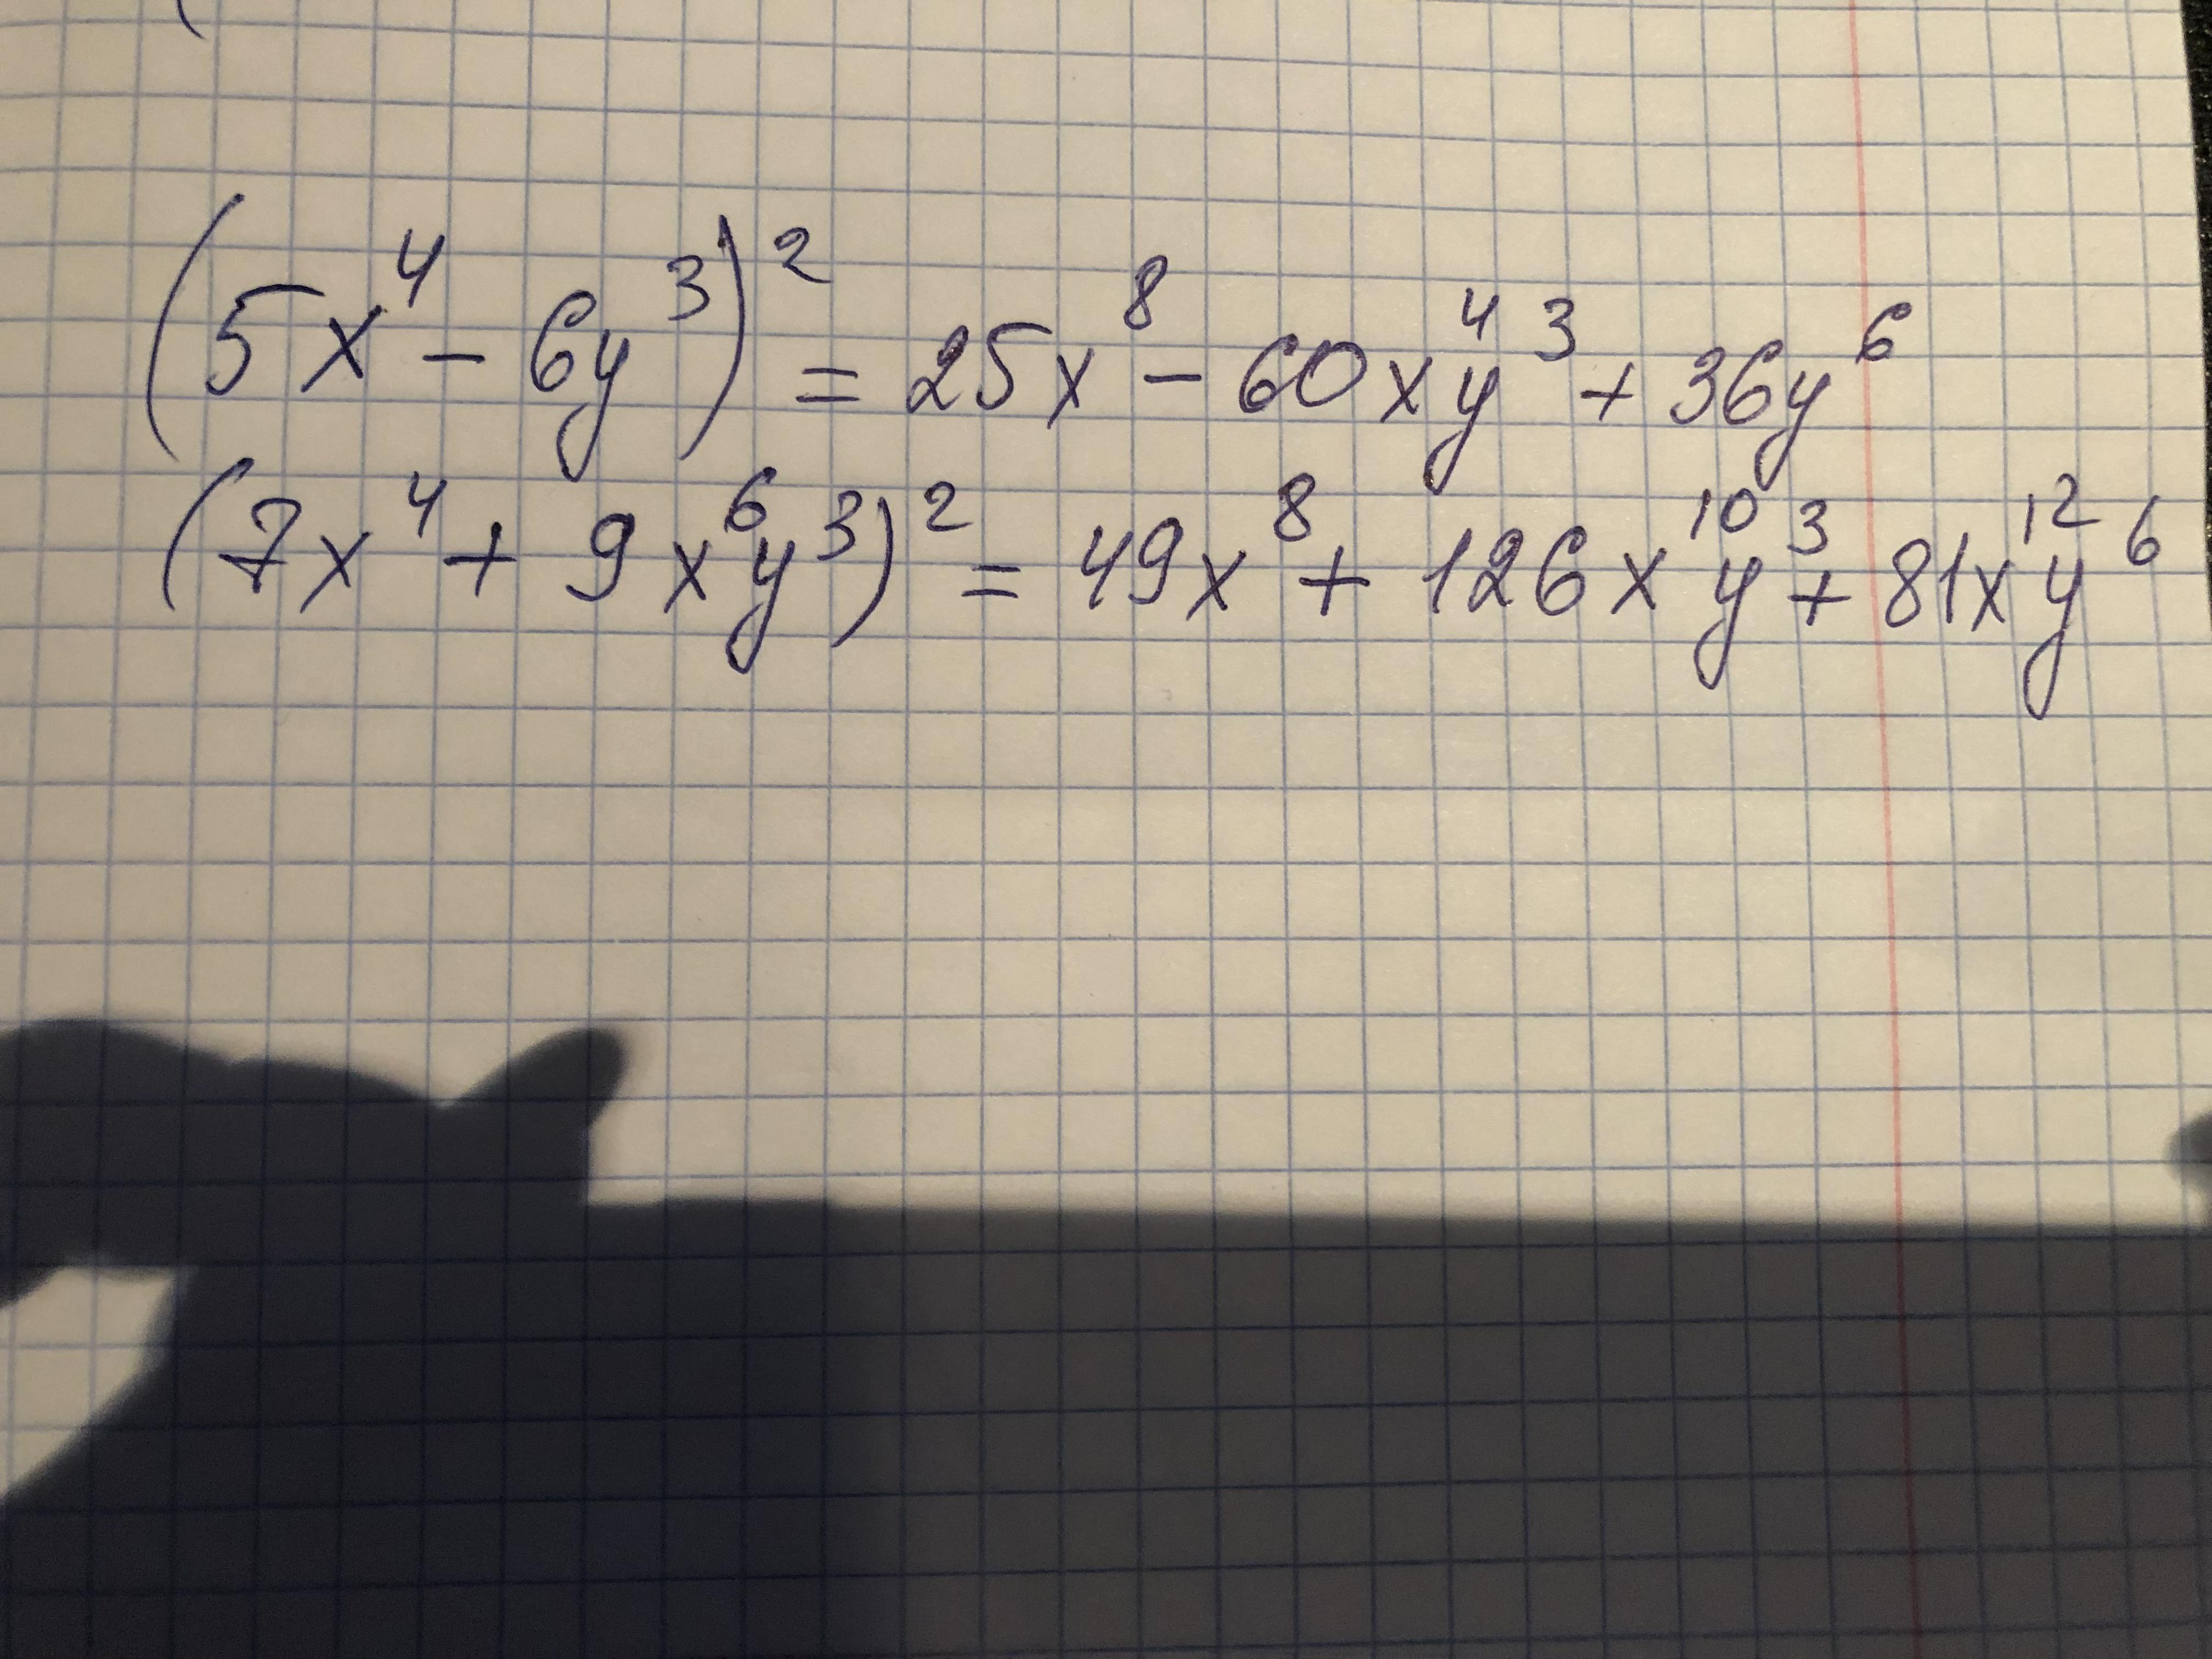 (5x⁴ - 6y³)² = 25x⁸ - 60x⁴y³ + 36y⁶
(7x⁴ + 9x⁶y³)² = 49x⁸ + 126x¹⁰y³ + 81x¹²y⁶